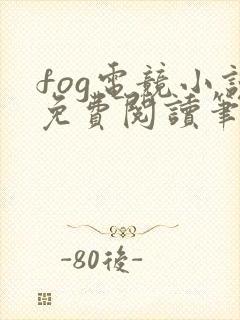 fog電競小說
免費閱讀筆
-80後-